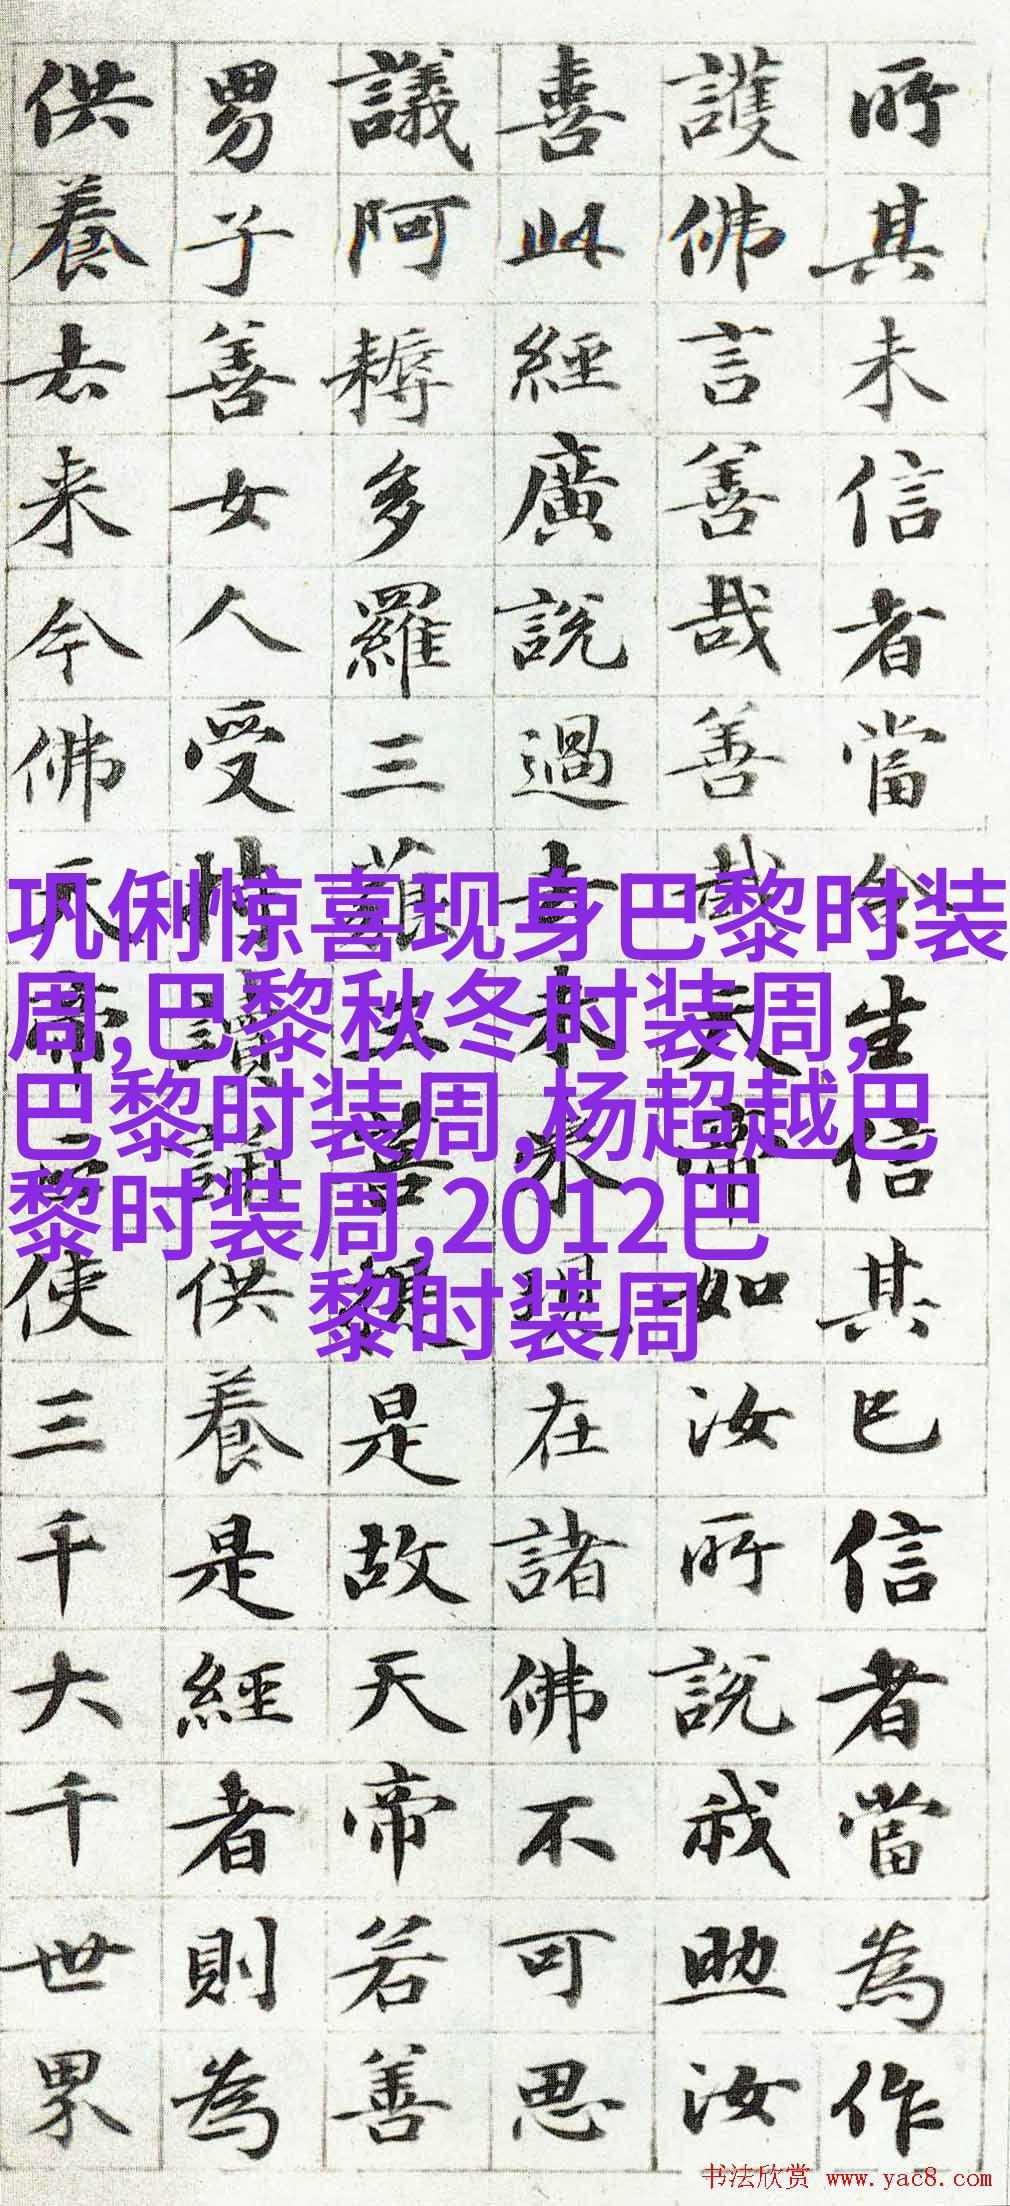 所其未信者當令生信其已信者當為作
護佛言善哉善哉天帝如汝所說我助汝
喜此經廣說過去未来現在諸佛不可思
議阿耨多羅三藐三菩提是故天帝若善
男子善女人受持讀誦供養是經者則為
供養去来今佛天帝正使三千大千世界
巩俐惊喜现身巴黎时装
周,巴黎秋冬时装周,
巴黎时装周,杨超越巴
黎时装周,2012巴
黎时装周
书法欣赏 www.yac8.com